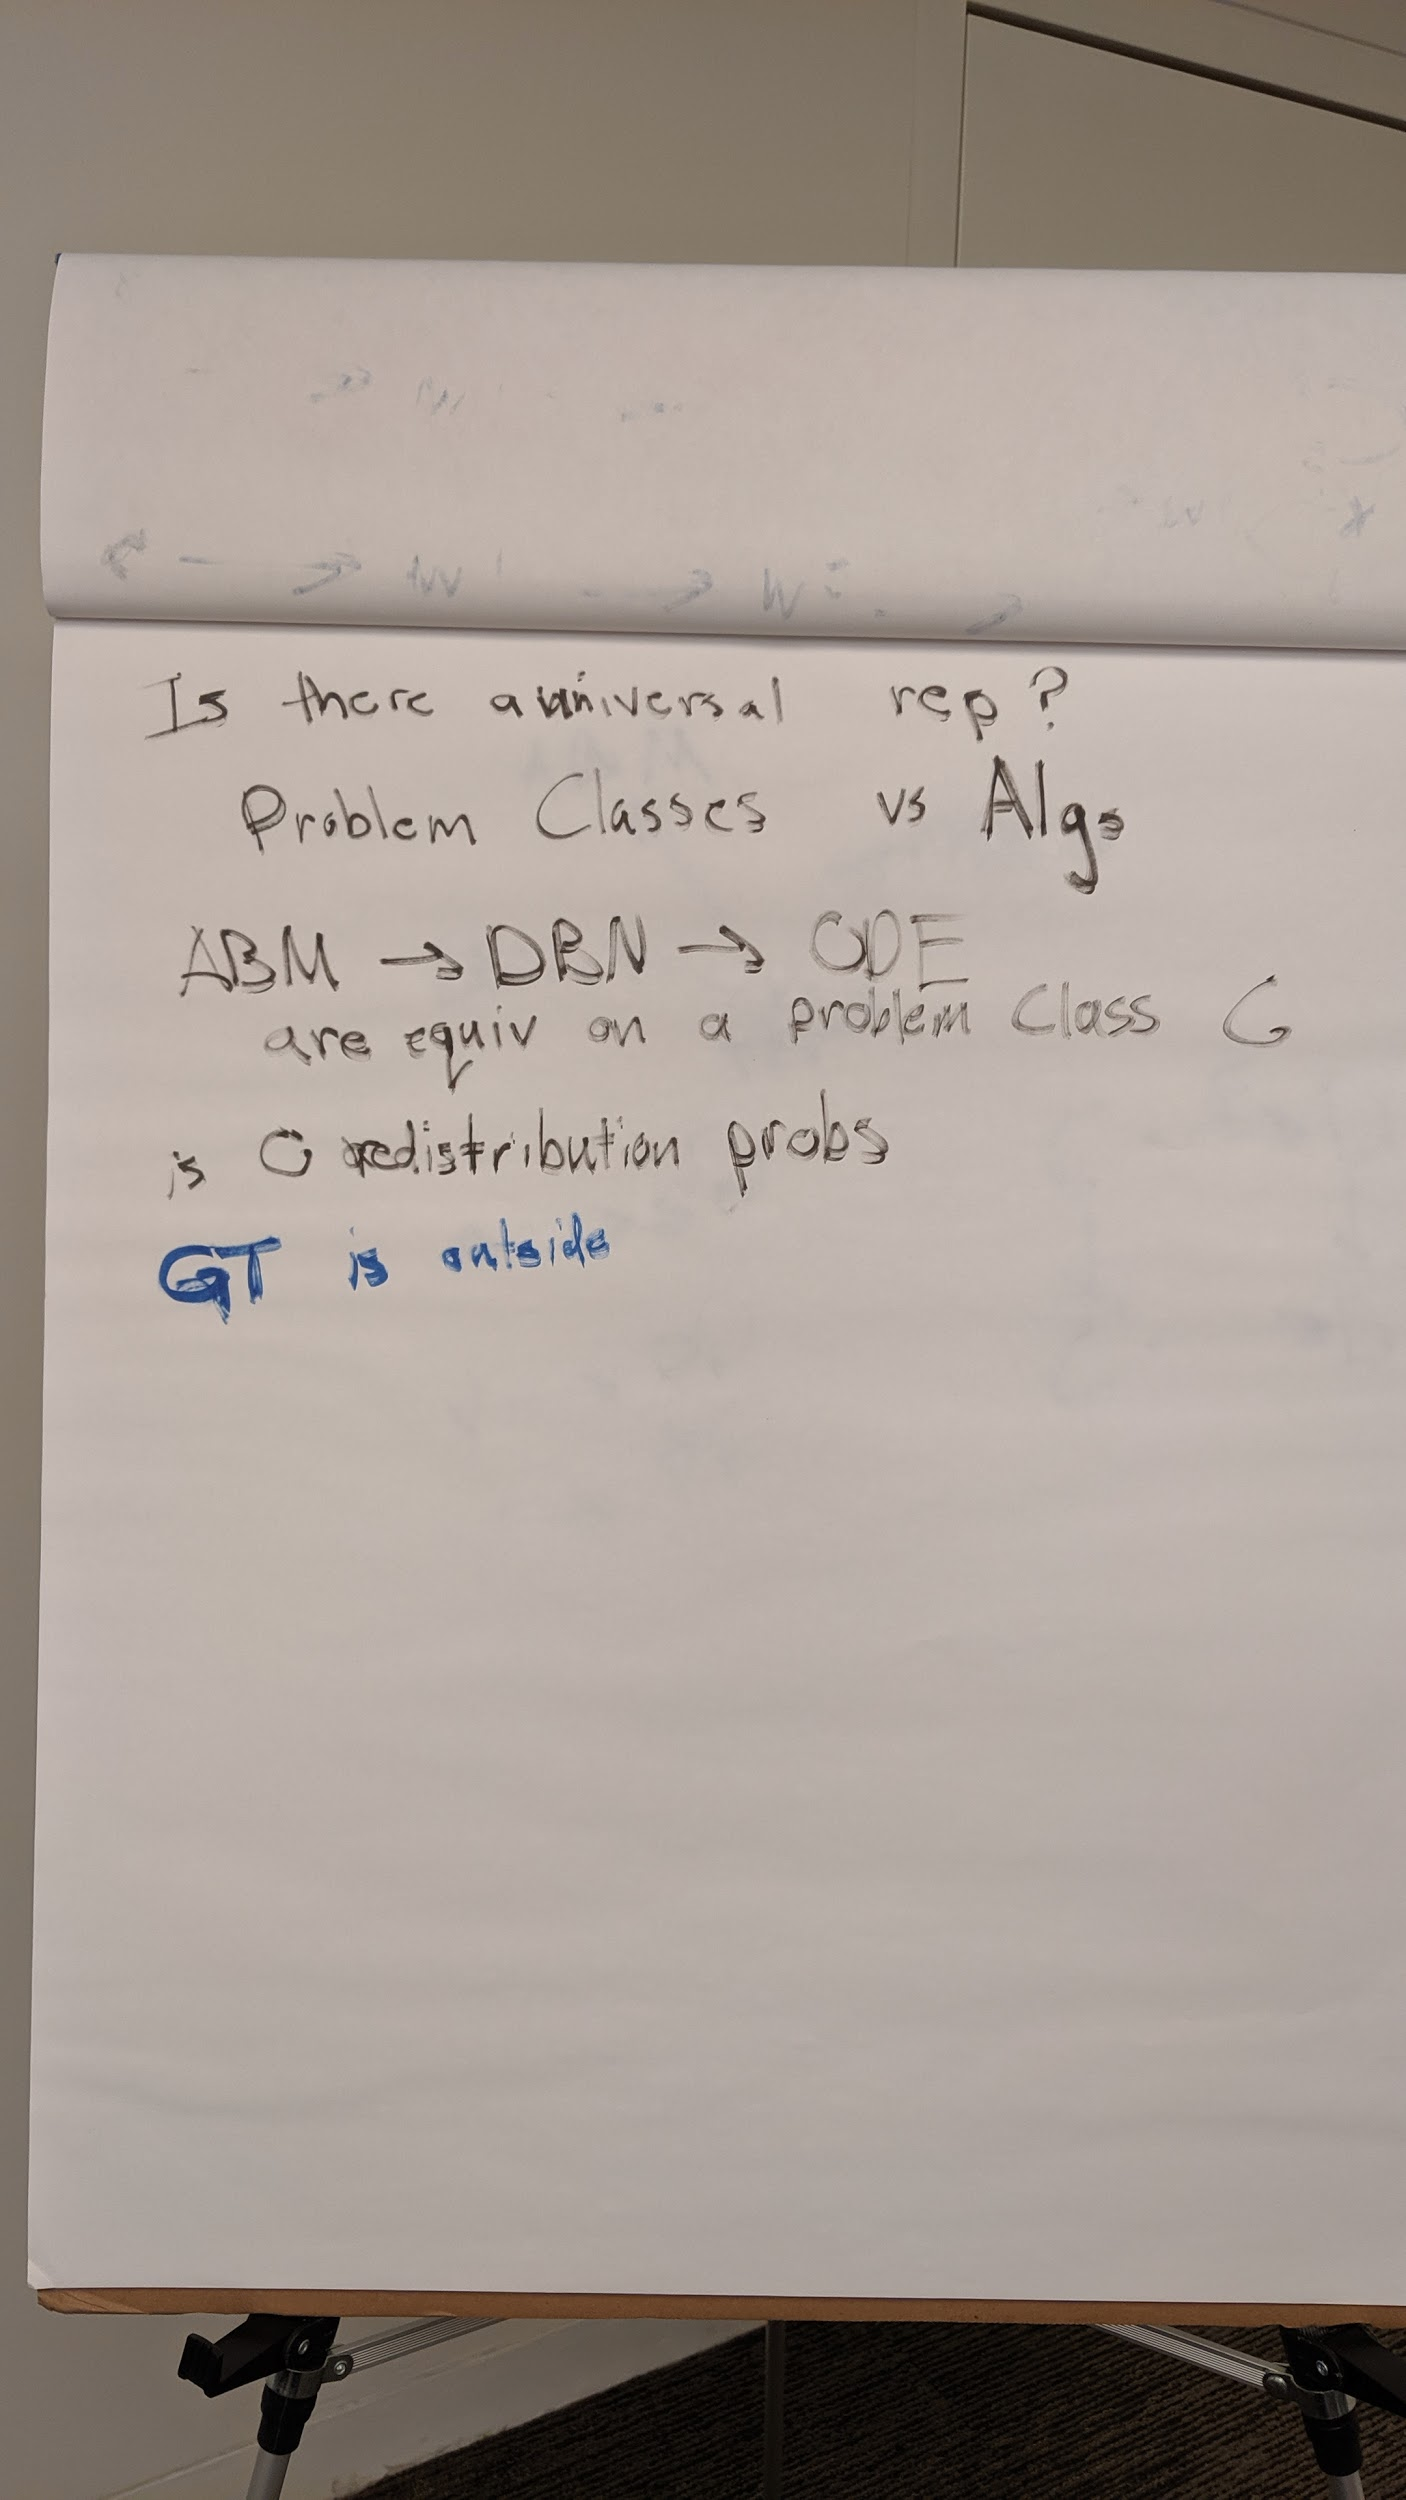 Is there a universal rep?
Problem Classes vs Algs
ABM → DBN → ODE
are equiv on a problem Class C
is C redistribution probs
GT is outside